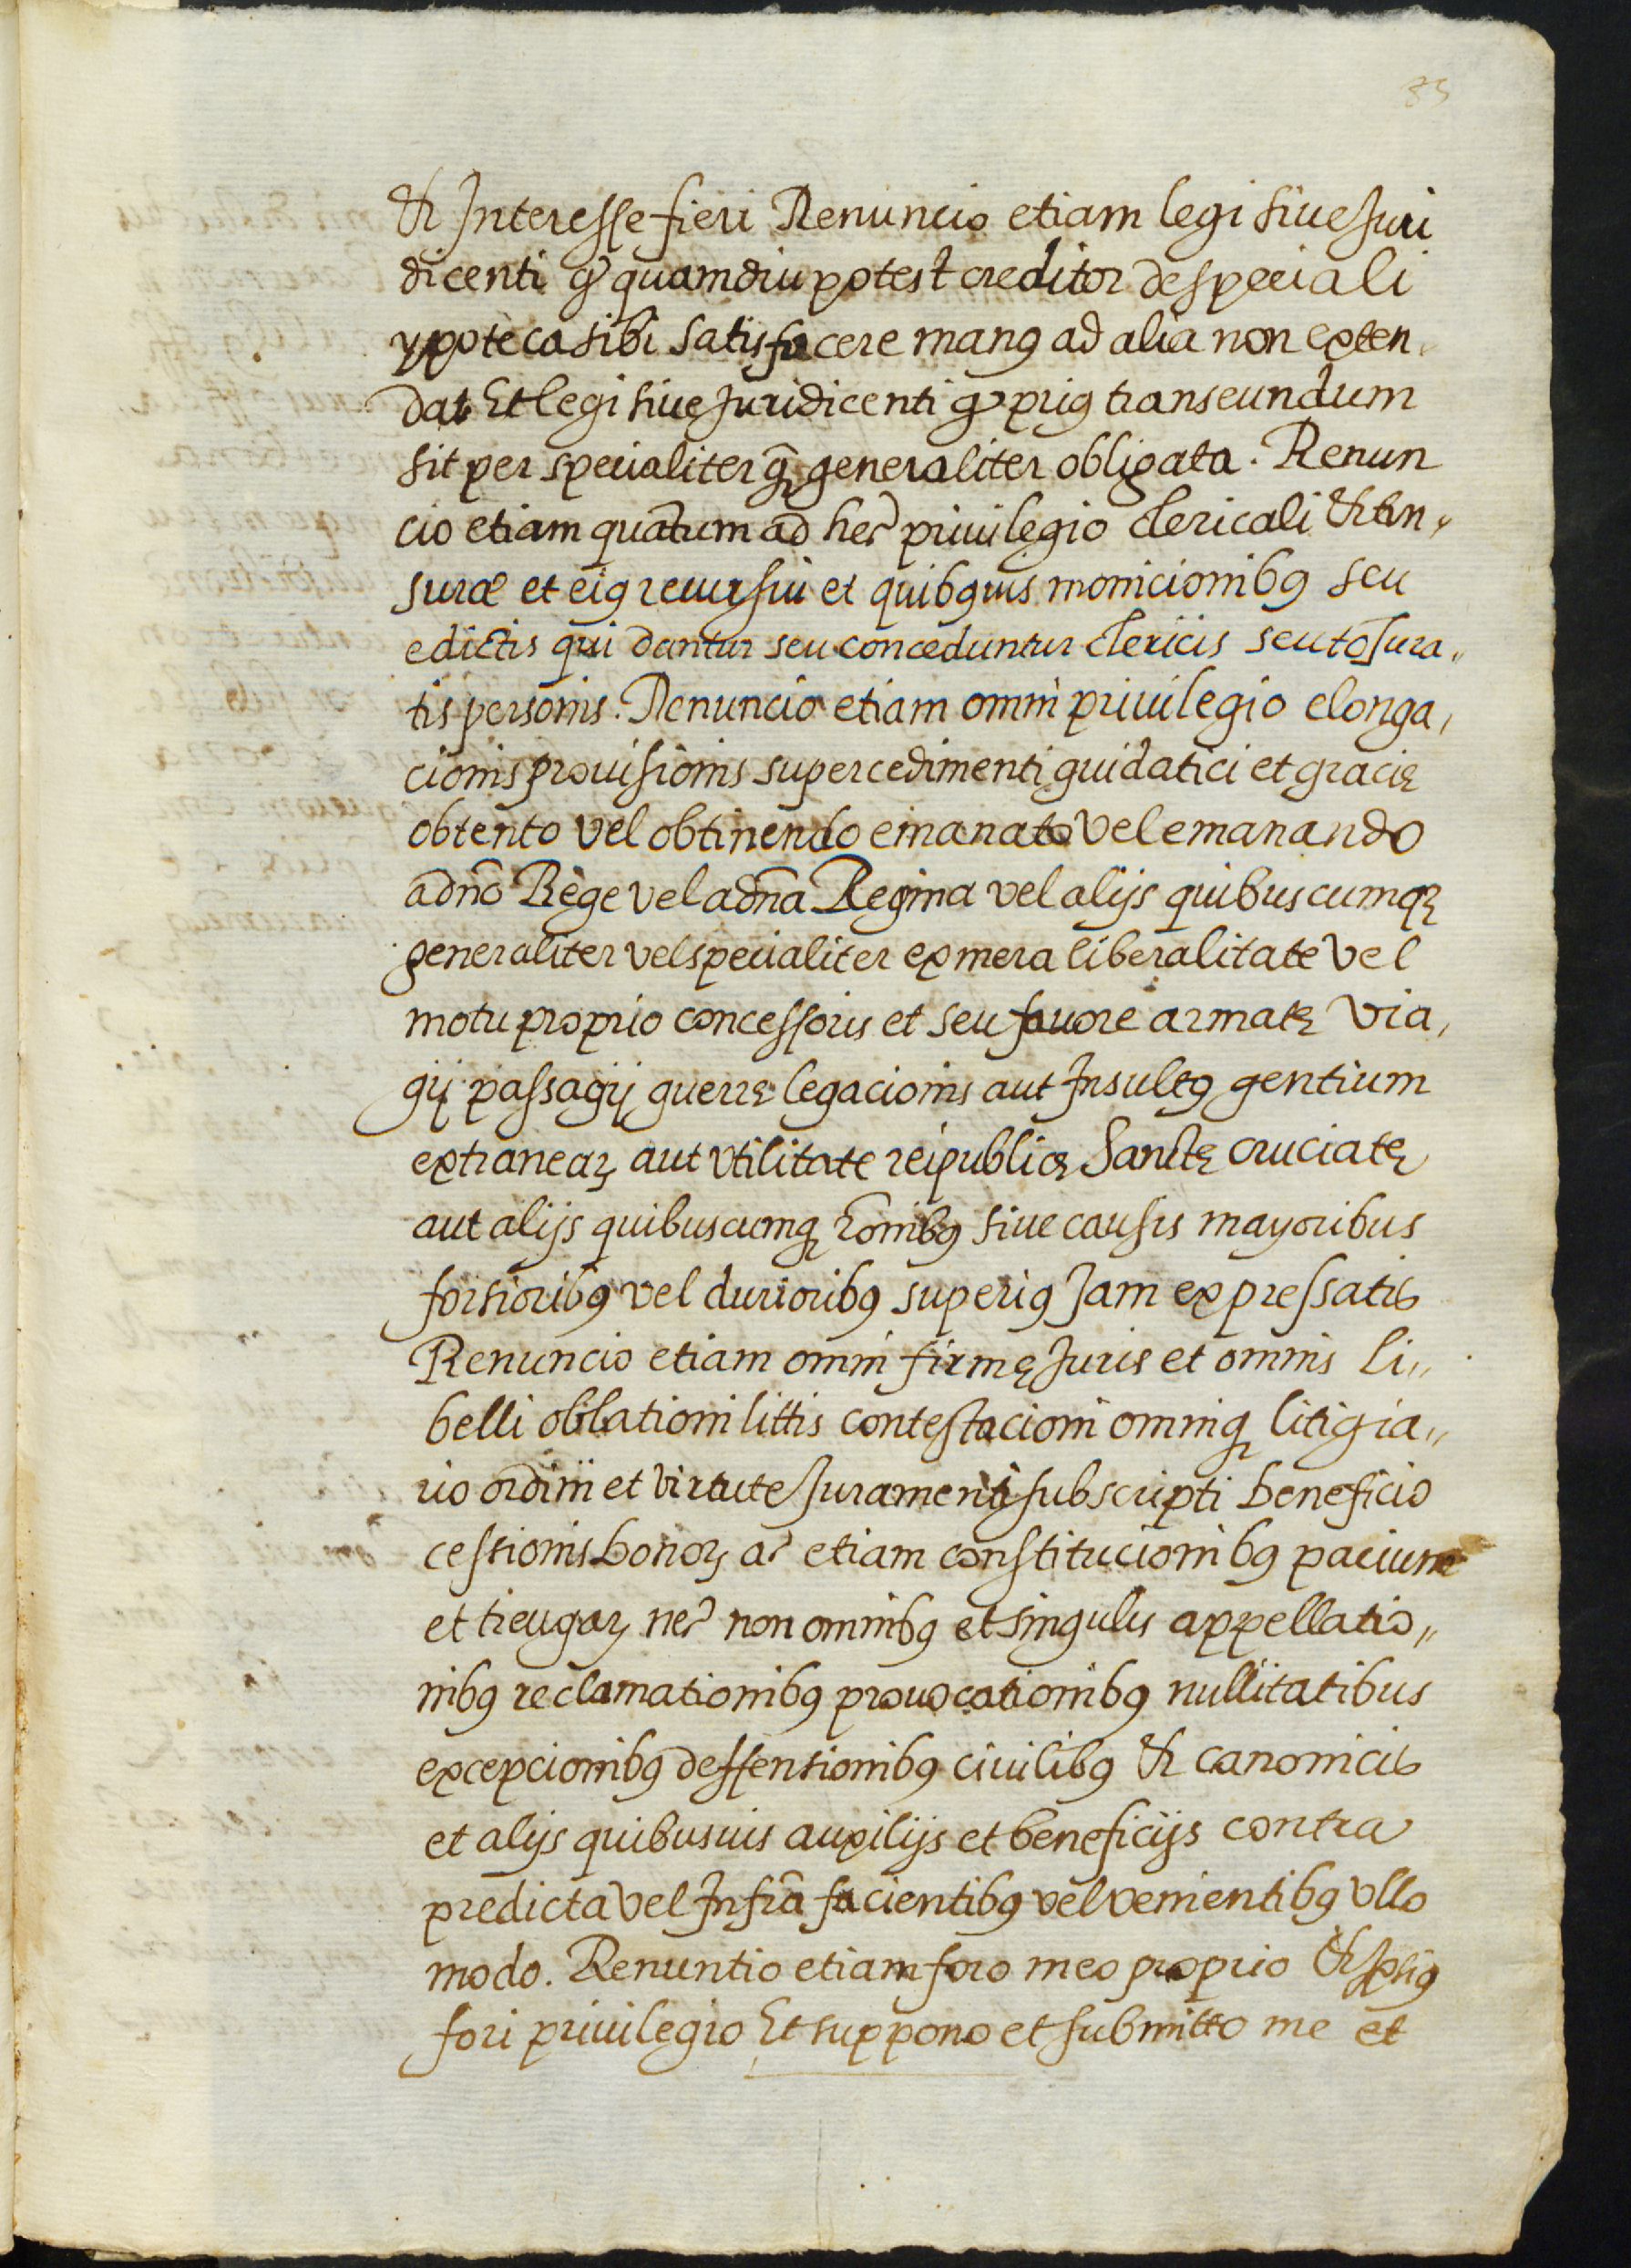 85
& Interesse fieri Renuncio etiam legi siue Juri
dicenti ꝙ quamdiu potest creditor de speciali
ypoteca sibi satisfacere manꝰ ad alia non exten,
dat Et legi siue Juri dicenti ꝙ priꝰ transeundum
sit per specialiter ꝗ̃ generaliter obligata. Renun
cio etiam quãtum ad hec priuilegio clericali & ton,
suræ et eiꝰ recursui et quibꝰuis monicionibꝰ seu
edictis qui dantur seu conceduntur clericis seu tõsura,,
tis personis. Renuncio etiam omni priuilegio elonga,
cionis prouisionis supercedimenti guidatici et gracię
obtento vel obtinendo emanato vel emanando
a dño Rege vel a dña Regina vel alijs quibuscumqꝫ
generaliter vel specialiter ex mera liberalitate vel
motu proprio concessoris et seu fauore armatę via,
gij passagij guerrę legacionis aut Insultꝰ gentium
extranearꝫ aut vtilitate reipublicę Sanctę cruciatę
aut alijs quibuscumqꝫ rõnibꝰ siue causis mayoribus
fortioribꝰ vel durioribꝰ superiꝰ Jam expressatis
Renuncio etiam omni firmę Juris et omnis li,,
belli oblationi littis contestacioni omniqꝫ litigia,,
rio ordini et virtute Juramenti subscripti beneficio
cessionis bonorꝫ ac etiam constitucionibꝰ pacium
et treugarꝫ nec non omnibꝰ et singulis appellatio,,
nibꝰ reclamationibꝰ prouocationibꝰ nullitatibus
excepcionibꝰ deffensionibꝰ ciuilibꝰ & canonicis
et alijs quibusuis auxilijs et beneficijs contra
predicta vel Infrã facientibꝰ vel venientibꝰ vllo
modo. Renuntio etiam foro meo proprio & Ipsiꝰ
fori priuilegio Et suppono et submitto me et